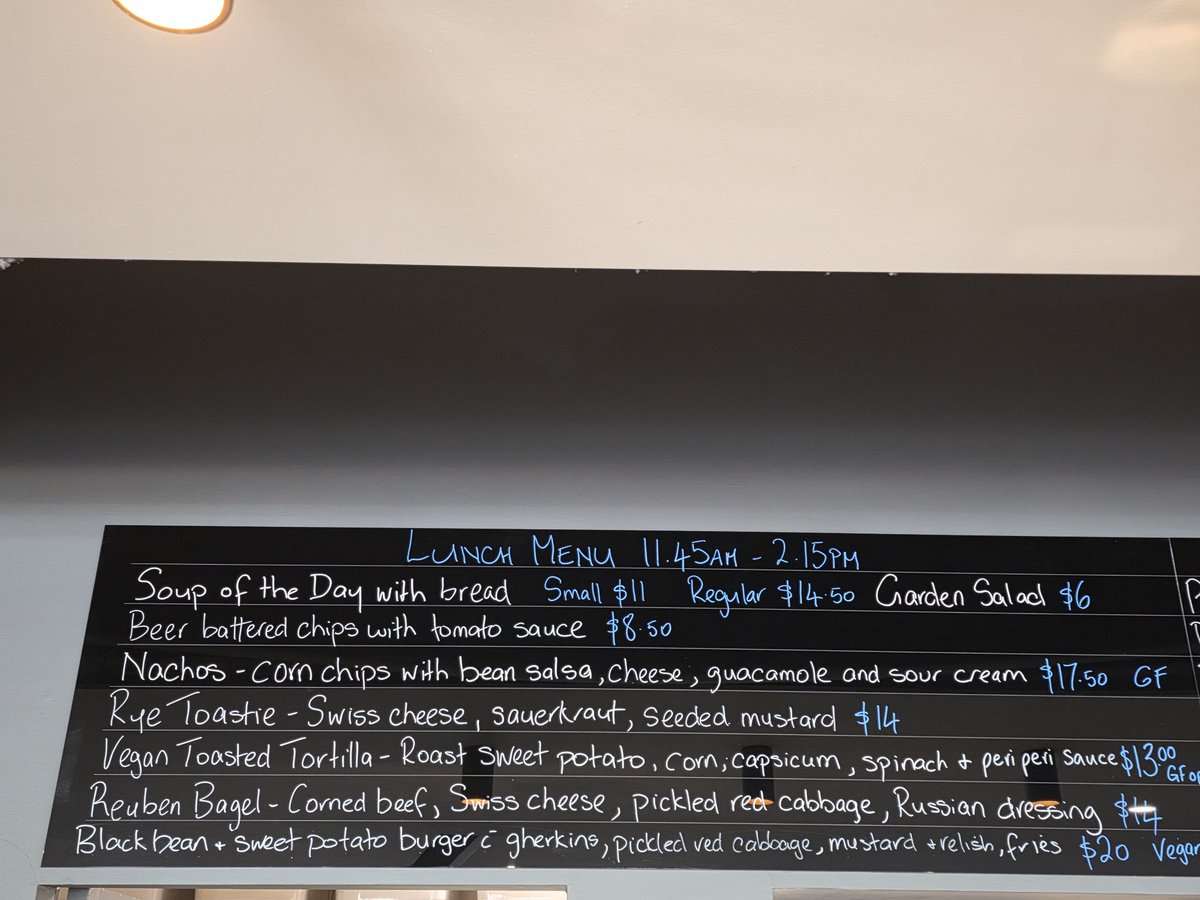 LUNCH MENU 11.45AM - 2.15PM
Soup of the Day with bread Small $11 Regular $14.50 Garden Salad $6
Beer battered chips with tomato sauce $8.50
Nachos - corn chips with bean salsa, cheese, guacamole and sour cream $17.50 GF
Rye Toastie - Swiss cheese, sauerkraut, seeded mustard $14
Vegan Toasted Tortilla - Roast sweet potato, corn, capsicum, spinach + peri peri sauce $13.00 GF
Reuben Bagel - Corned beef, Swiss cheese, pickled red cabbage, Russian dressing $14
Black bean + sweet potato burger c̄ gherkins, pickled red cabbage, mustard + relish, fries $20 Vegan